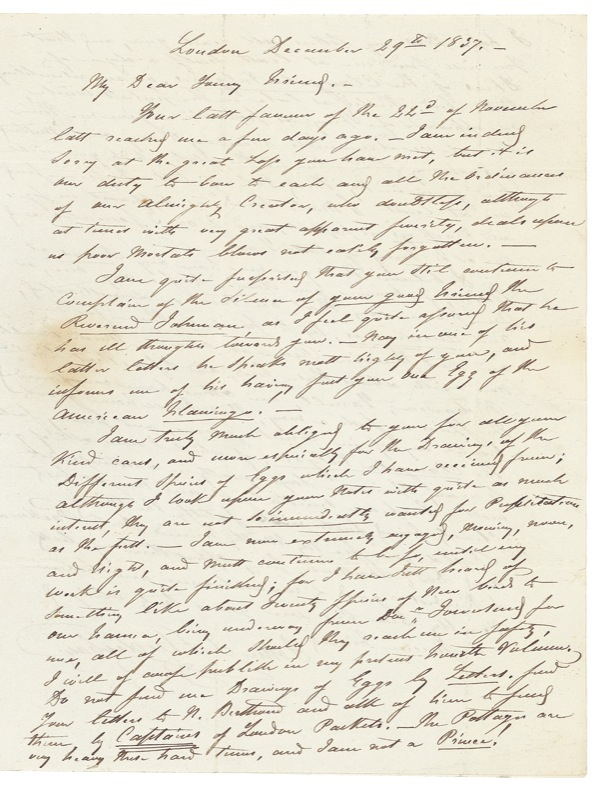 London December 29th 1837.—
My Dear Young Friend.—
Your last favour of the 22d of November
last reached me a few days ago.— I am indeed
sorry at the great Loss you have met, but it is
our duty to bow to each and all the Ordinances
of our Almighty Creator, who doubtless, although
at times with very great apparent severity, deals upon
us poor Mortals blows not easily forgotten.—
I am quite surprised that you still continue to
Complain of the silence of your good Friend the
Reverend Bachman, as I feel quite assured that he
has ill thoughts towards you.— Nay in one of his
latter letters he speaks most highly of you, and
informs me of his having sent you one Egg of the
American Flamingo.—
I am truly much obliged to you for all your
Kind cares, and more especially for the Drawings of the
Different Species of Eggs which I have received from;
although I look upon your Notes with quite as much
interest, they are not so immediately wanted for Publication
as the first.— I am now extremely engaged, Morning, noon,
and Night, and must continue to be so, until my
work is quite finished; for I have just heard of
something like about Twenty Species of New birds to
our Fauna, being underway from Dr. Townsend for
me, all of which should they reach me in safety,
I will of course publish in my present fourth Volume.
Do not send me Drawings of Eggs by Letters. send
Your letters to N. Berthoud and ask of him to send
them by Captains of London Packets.— The Postages are
very heavy these hard times, and I am not a Prince!